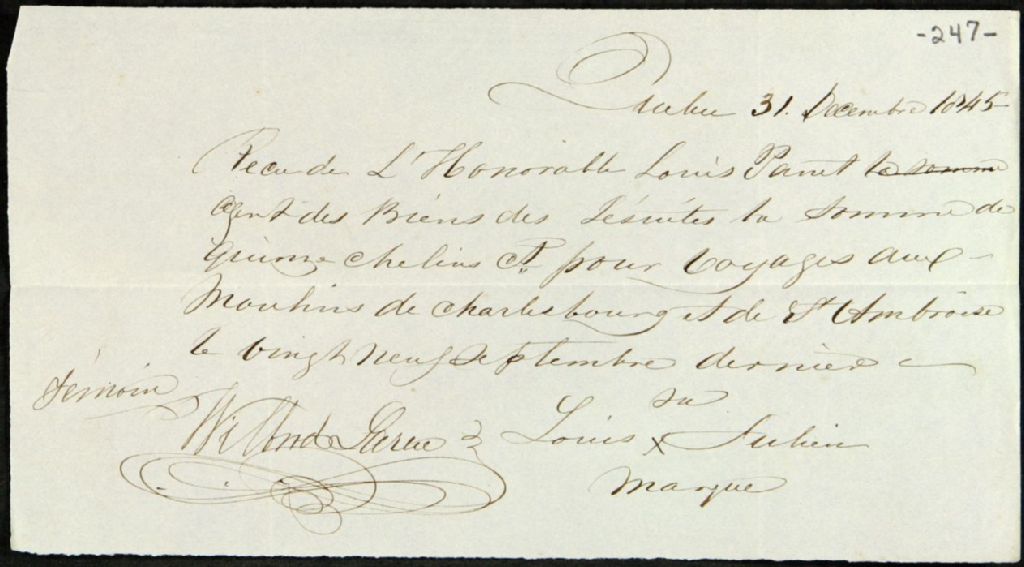 -247-
Quebec 31. Decembre 1845
Recu de L'Honorable Louis Panet la somme
agent des Biens des Jésuites la somme de
Quinze chelins Ct. pour voyages aux
Moulins de Charlesbourg et de St Ambroise
le vingt neuf Septembre dernier
témoin
sa
Louis x Julien
marque